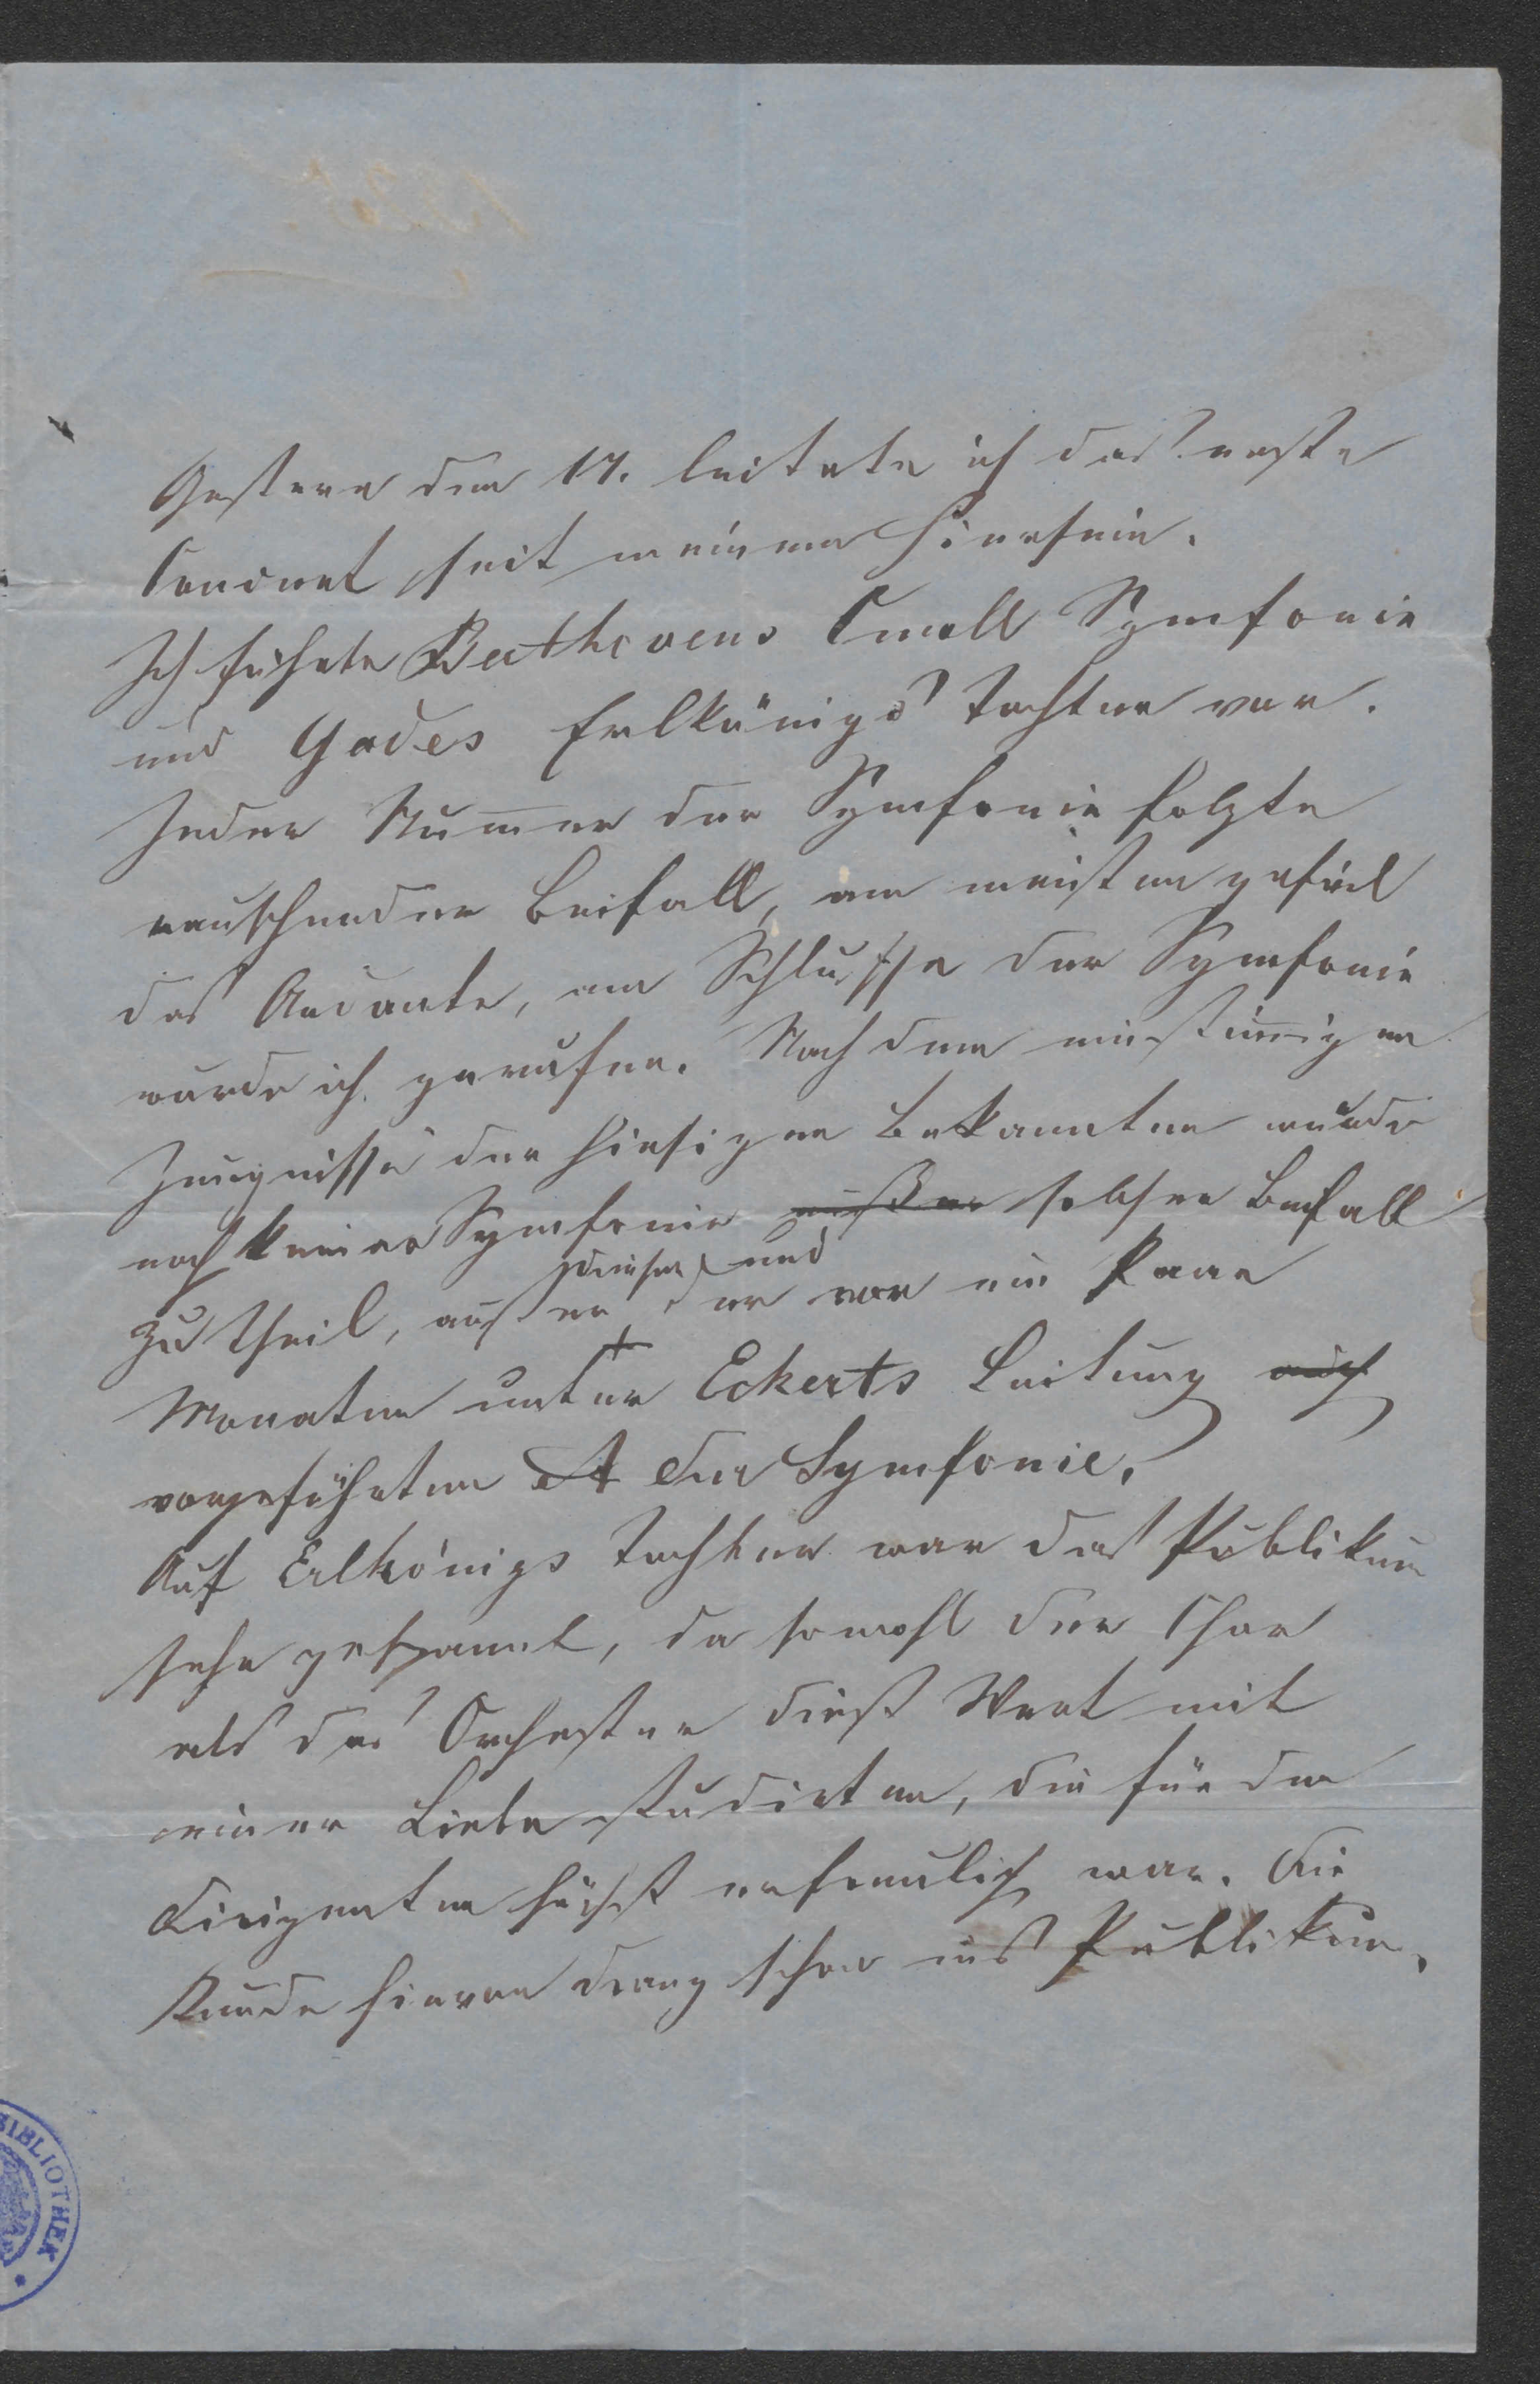 Gestern den 17. leitete ich das erste
Concert seit meinem Hiersein.
Ich führte Beethovens Cmoll Symfonie
und Gades Erlkönigs Tochter vor.
Jeder Num̅er der Symfonie folgte
rauschender Beifall, am meisten gefiel
das Andante, am Schlusse der Symfonie
wurde ich gerufen. Nach dem einstim̅igen
Zeugnisse der hiesigen Bekannten wurde
noch keiner Symfonie außer solcher Beifall
zu Theil, außer dieser und der vor ein Paar
Monaten unter Eckerts Leitung auch
vorgeführten A dur Symfonie.
Auf Erlkönigs Tochter war das Publikum
sehr gespannt, da sowohl der Chor
als das Orchester dieß Werk mit
einer Liebe studirten, die für den
Dirigenten höchst erfreulich war. Die
Kunde hievon drang schon ins Publikum,
BIBLIOTHEK